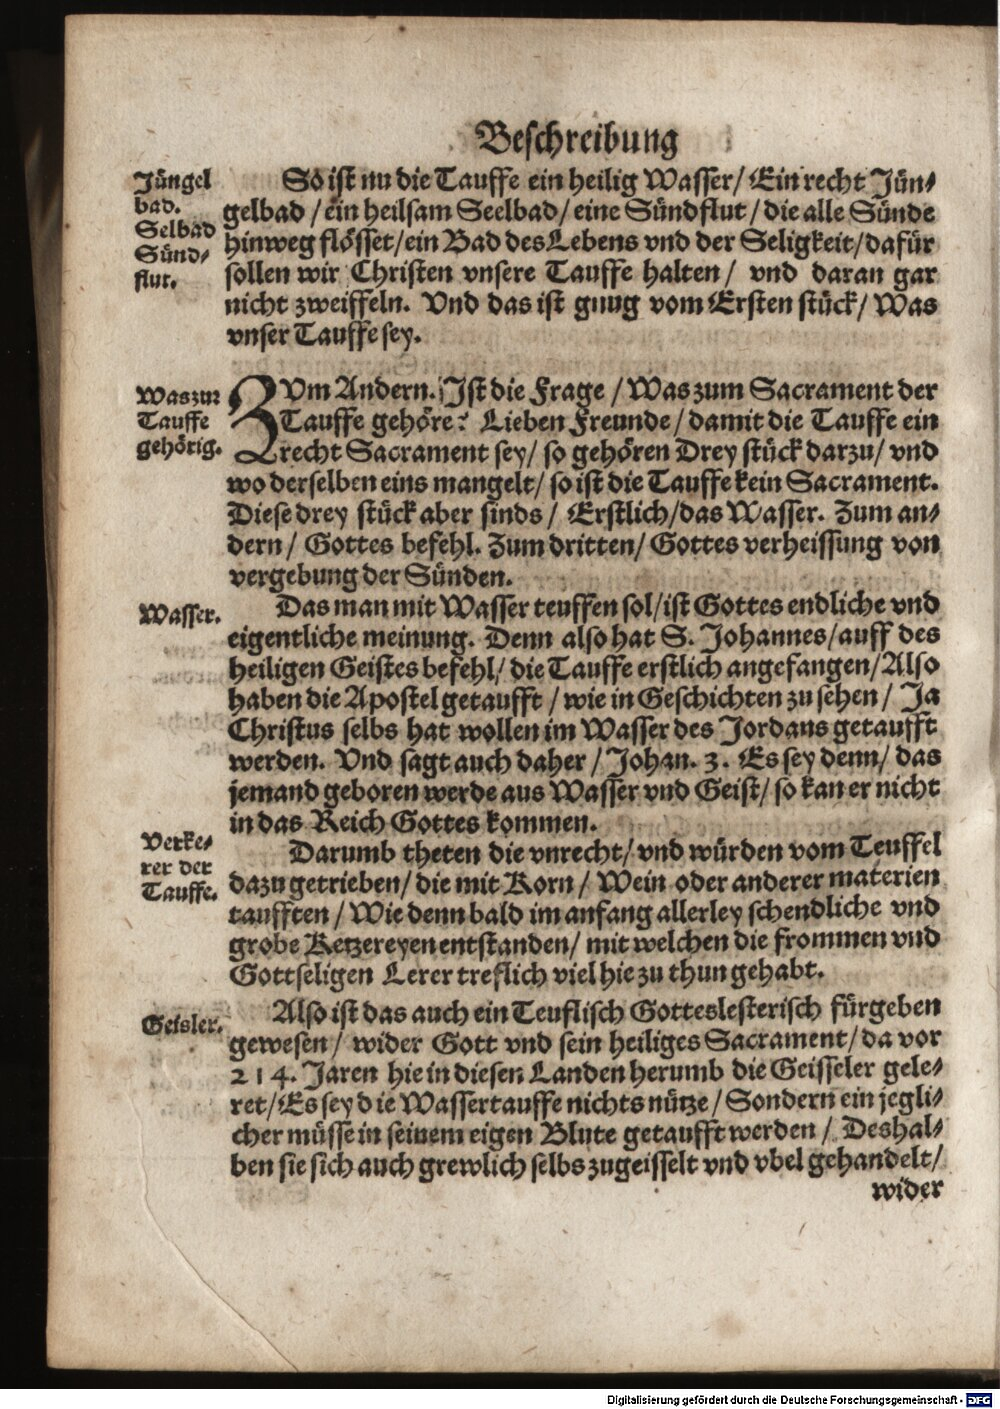 Beschreibung
Jüngel
bad.
Selbad
Sünd-
flut.
So ist nu die Tauffe ein heilig Wasser/ Ein recht Jün-
gelbad / ein heilsam Seelbad/ eine Sündflut / die alle Sünde
hinweg flösset/ ein Bad des Lebens vnd der Seligkeit/ dafür
sollen wir Christen vnsere Tauffe halten/ vnd daran gar
nicht zweiffeln. Vnd das ist gnug vom Ersten stück/ Was
vnser Tauffe sey.
Was zur
Tauffe
gehörig.
ZVm Andern. Ist die Frage / Was zum Sacrament der
Tauffe gehöre? Lieben Freunde / damit die Tauffe ein
recht Sacrament sey/ so gehören Drey stück darzu/ vnd
wo derselben eins mangelt/ so ist die Tauffe kein Sacrament.
Diese drey stück aber sinds / Erstlich/ das Wasser. Zum an-
dern / Gottes befehl. Zum dritten/ Gottes verheissung von
vergebung der Sünden.
Wasser.
Das man mit Wasser teuffen sol/ ist Gottes endliche vnd
eigentliche meinung. Denn also hat S. Johannes/ auff des
heiligen Geistes befehl/ die Tauffe erstlich angefangen/ Also
haben die Apostel getaufft / wie in Geschichten zu sehen / Ja
Christus selbs hat wollen im Wasser des Jordans getaufft
werden. Vnd sagt auch daher / Johan. 3. Es sey denn/ das
jemand geboren werde aus Wasser vnd Geist/ so kan er nicht
in das Reich Gottes kommen.
Verke-
rer der
Tauffe.
Darumb theten die vnrecht/ vnd würden vom Teuffel
dazu getrieben/ die mit Korn / Wein oder anderer materien
taufften / Wie denn bald im anfang allerley schendliche vnd
grobe Ketzereyen entstanden/ mit welchen die frommen vnd
Gottseligen Lerer treflich viel hie zu thun gehabt.
Geisler.
Also ist das auch ein Teuflisch Gotteslesterisch fürgeben
gewesen / wider Gott vnd sein heiliges Sacrament/ da vor
214. Jaren hie in diesen Landen herumb die Geisseler gele-
ret/ Es sey die Wassertauffe nichts nütze / Sondern ein jegli-
cher müsse in seinem eigen Blute getaufft werden / Deshal-
ben sie sich auch grewlich selbs zugeisselt vnd vbel gehandelt/
wider
Digitalisierung gefördert durch die Deutsche Forschungsgemeinschaft - DFG